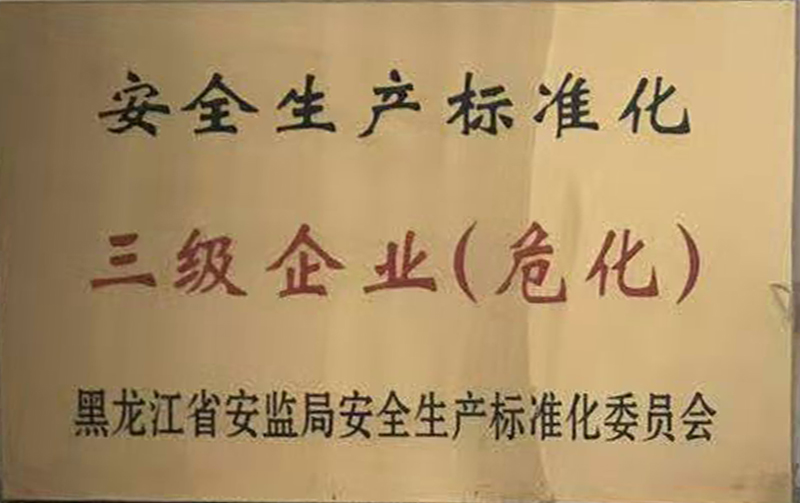 安全生产标准化
三级企业(危化)
黑龙江省安监局安全生产标准化委员会